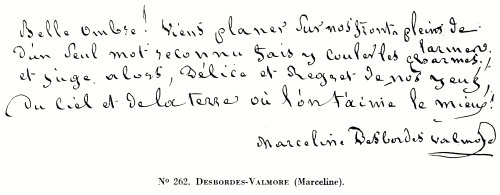 Belle ombre! Viens planer sur nos fronts pleins de
D'un seul mot reconnu fais y couler les charmes, larmes.
et juge, alors, Délice et Regret de nos yeux,
Du Ciel et de la terre où l'on t'aime le mieux!
Marceline Desbordes Valmore
Nº 262. DESBORDES-VALMORE (Marceline).